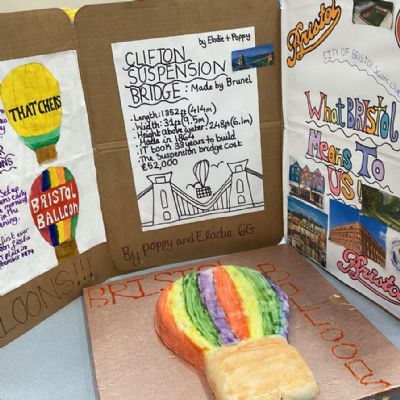 THATCHERS
BRISTOL
BALLOON
LOONS!!!
by Elodie + Poppy
CLIFTON
SUSPENSION
BRIDGE: Made by Brunel
• Length: 1352ft (414m)
• Width: 31ft (9.5m)
• Height above water: 248ft (6.1m)
• Made in 1864
• IT took 33 years to build
• The Suspension bridge cost
£52,000
By poppy and Elodie 6G
Bristol
CITY OF BRISTOL Swim club
What BRISTOL
Means To
US!
Bristol
BRISTOL BALLOON